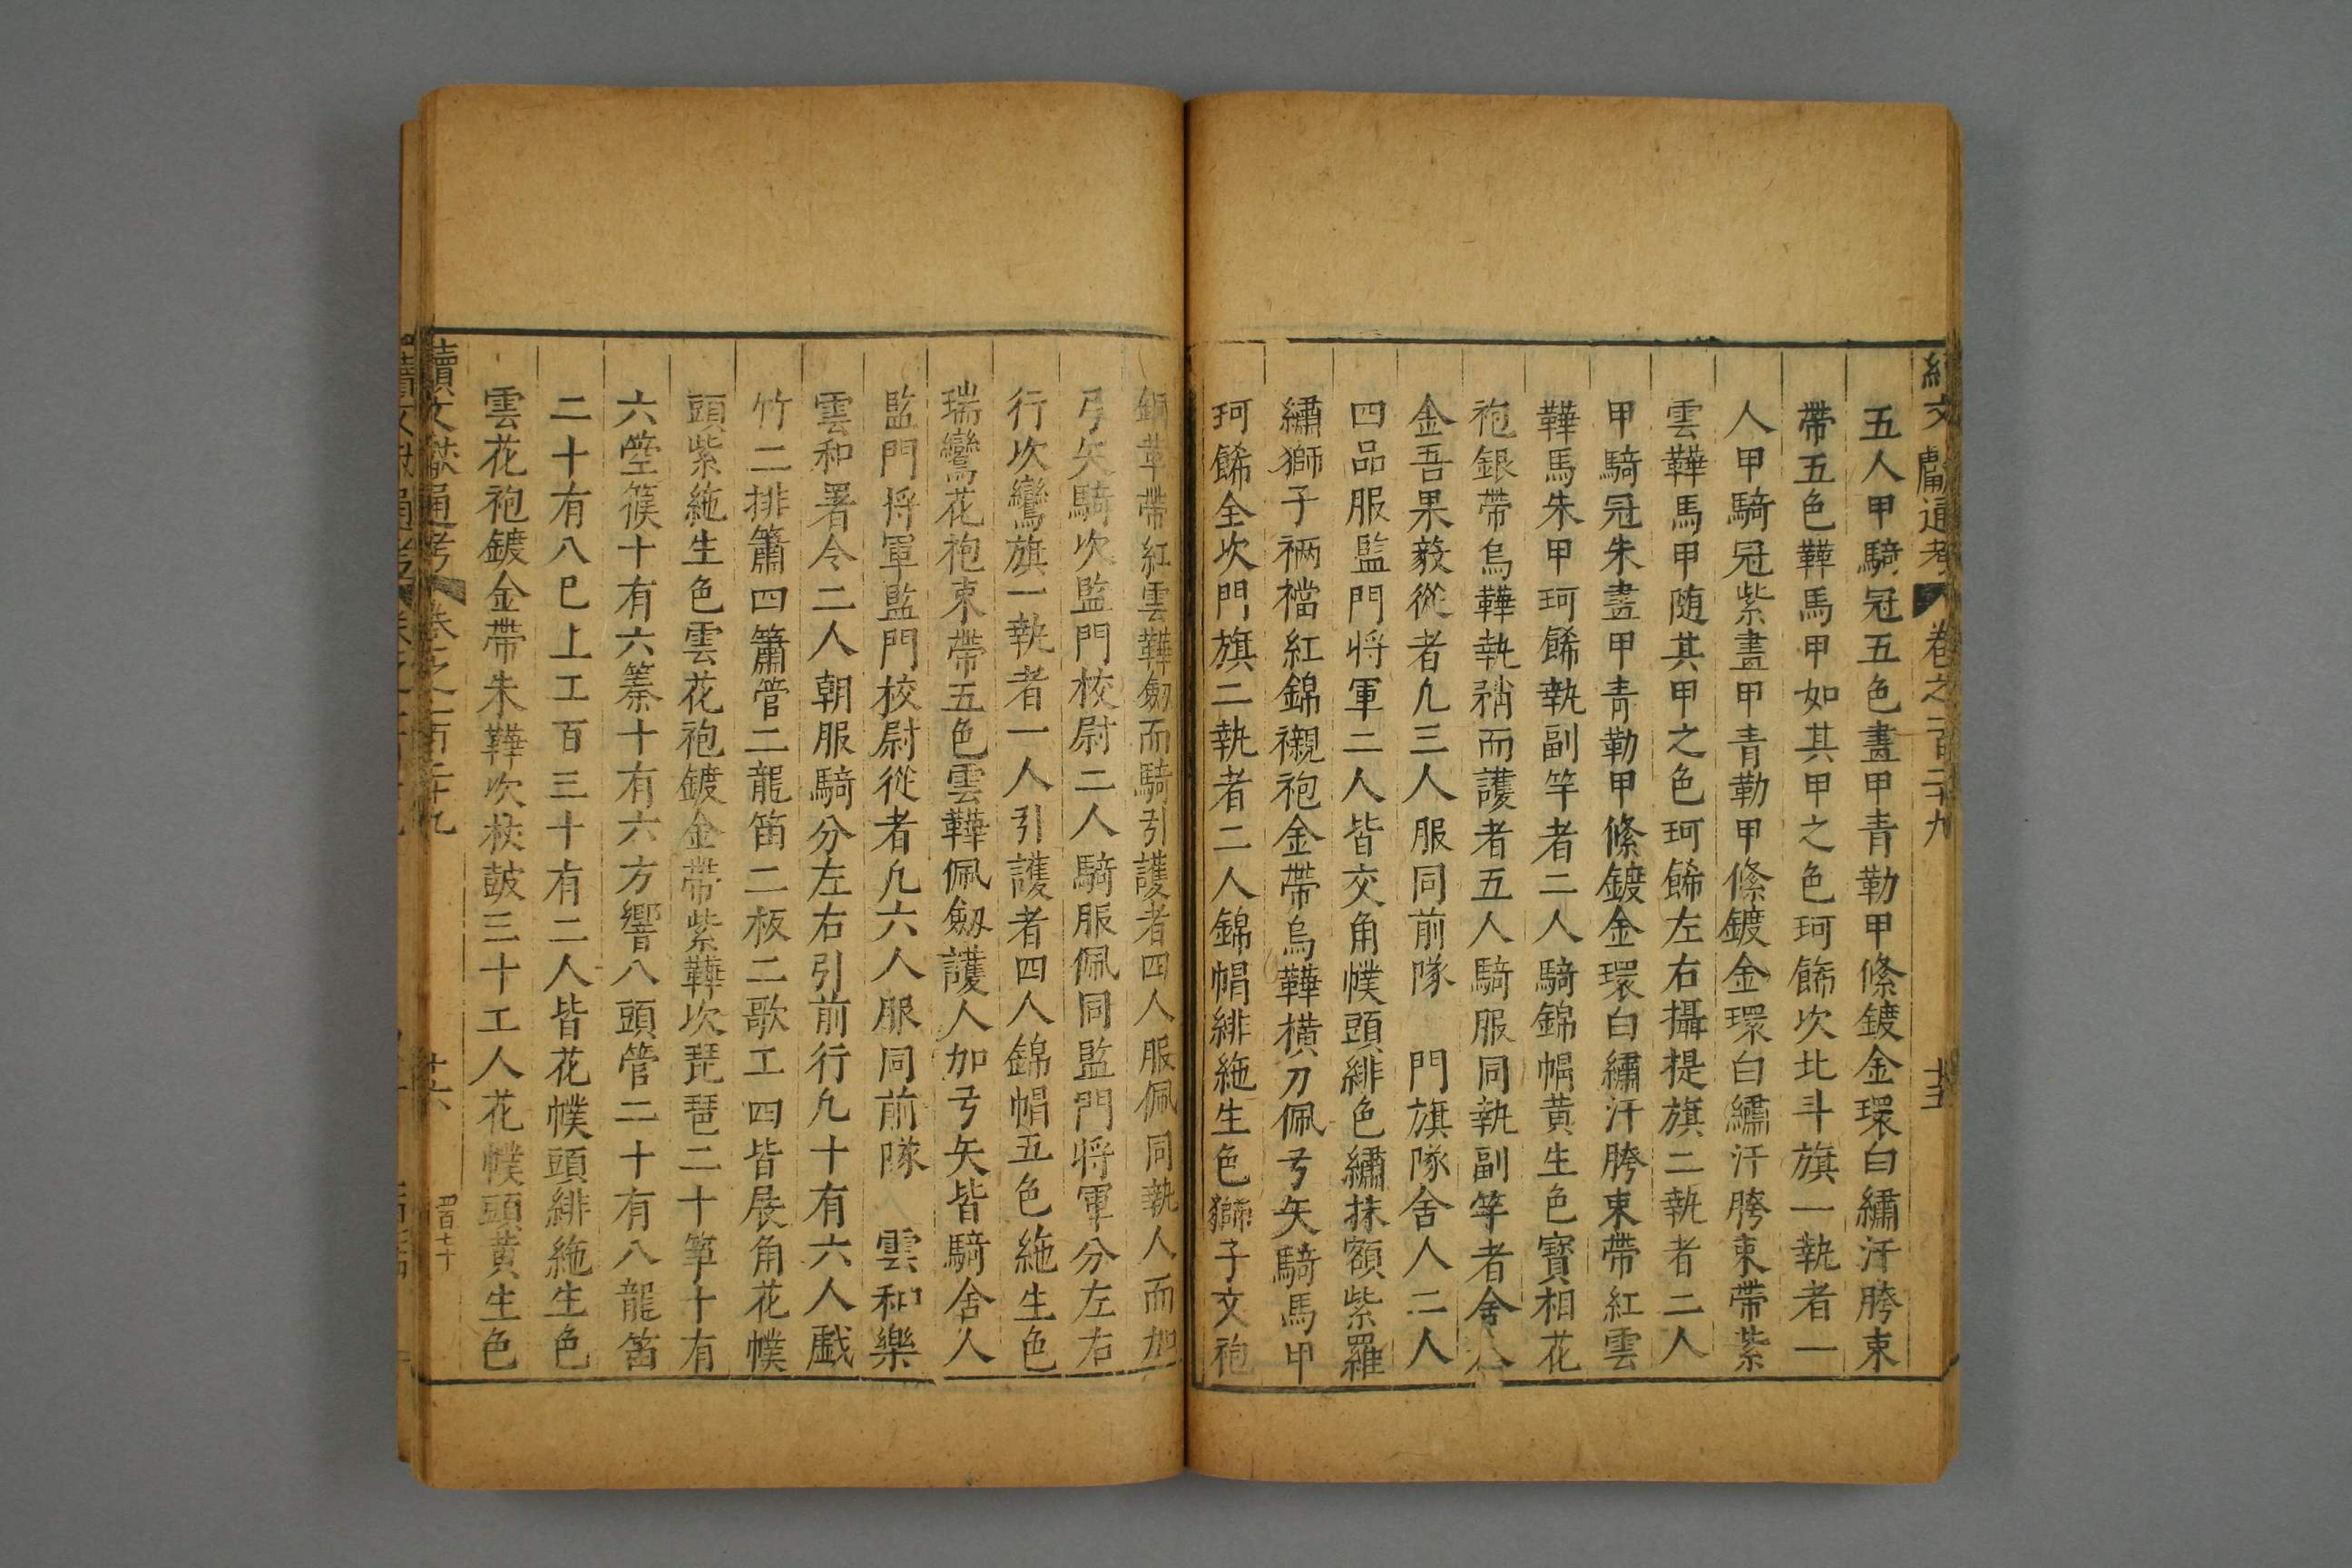 續文獻通考 卷之一百二十九 十五
五人甲騎冠五色畫甲青勒甲絛鍍金環白繡汗胯束
帶五色鞾馬甲如其甲之色珂飾次北斗旗一執者一
人甲騎冠紫畫甲青勒甲絛鍍金環白繡汗胯束帶紫
雲鞾馬甲随其甲之色珂飾左右攝提旗二執者二人
甲騎冠朱畫甲青勒甲絛鍍金環白繡汗胯束帶紅雲
鞾馬朱甲珂餙執副竿者二人騎錦帽黄生色寳相花
袍銀帶烏鞾執矟而護者五人騎服同執副竿者舍人
金吾果毅從者凡三人服同前隊 門旗隊舍人二人
四品服監門将軍二人皆交角幞頭緋色繡抹額紫羅
繡獅子裲襠紅錦襯袍金帶烏鞾横刀佩弓矢騎馬甲
珂餙全次門旗二執者二人錦帽緋絁生色獅子文袍
銅革帶紅雲鞾劒而騎引護者四人服佩同執人而加
弓矢騎次監門校尉二人騎服佩同監門将軍分左右
行次鸞旗一執者一人引護者四人錦帽五色絁生色
瑞鸞花袍束帶五色雲鞾佩劒護人加弓矢皆騎舍人
監門将軍監門校尉從者凡六人服同前隊 雲和樂
雲和署令二人朝服騎分左右引前行凡十有六人戲
竹二排簫四簫管二龍笛二板二歌工四皆展角花幞
頭紫絁生色雲花袍鍍金帶紫鞾次琵琶二十箏十有
六箜篌十有六䇞十有六方響八頭管二十有八龍笛
二十有八已上工百三十有二人皆花幞頭緋絁生色
雲花袍鍍金帶朱鞾次杖鼓三十工人花幞頭黄生色
續文獻通考 卷之一百二十九 十六